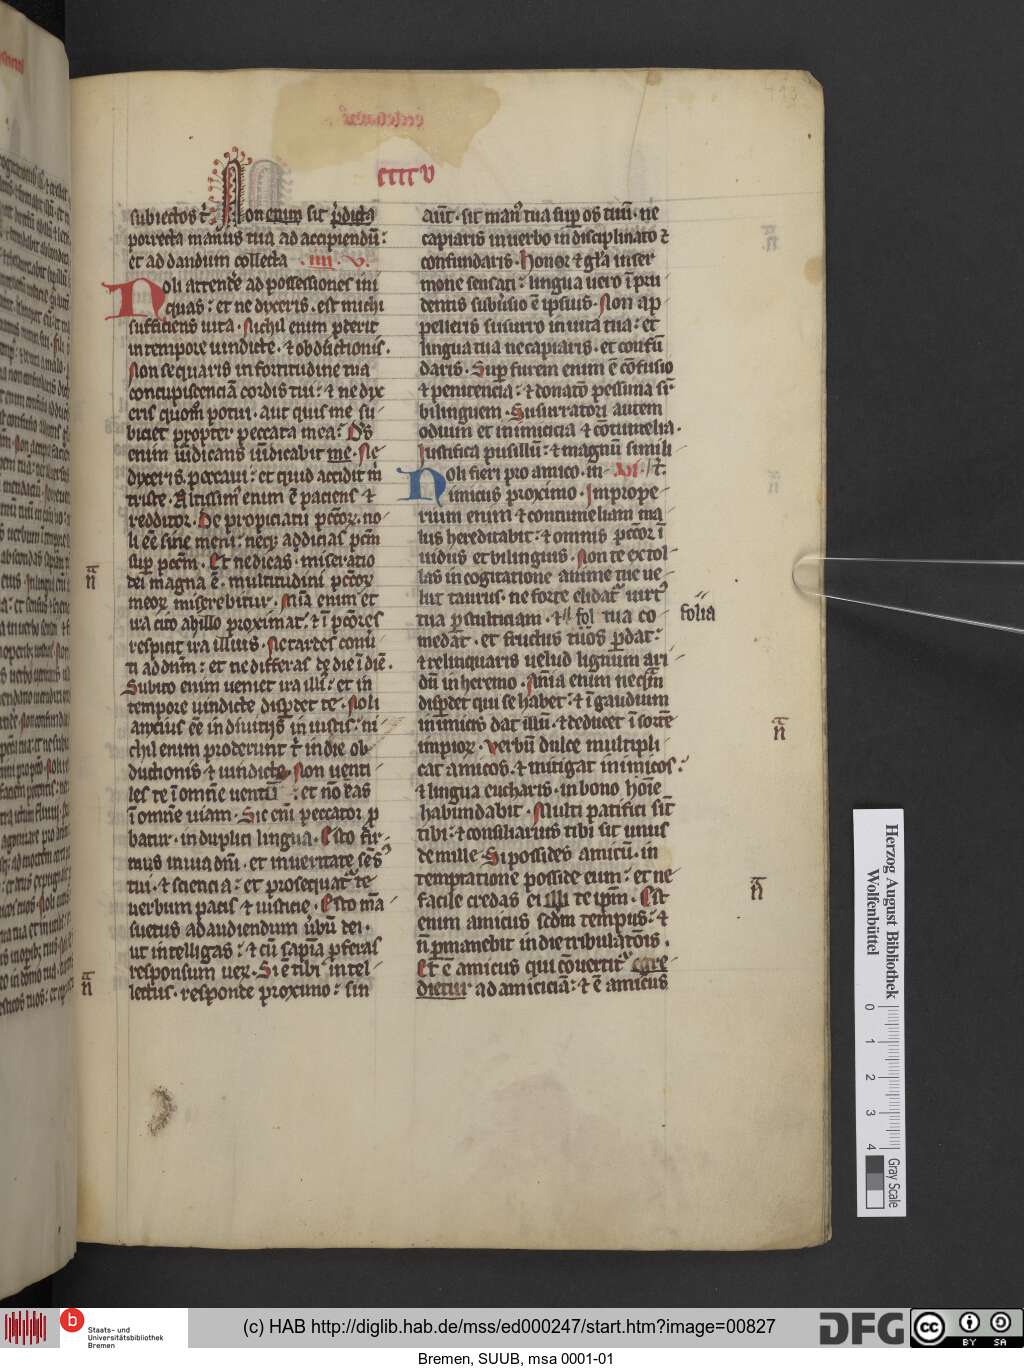 ccccv
subiectos t̉. Non enim sit p̄dicta
porrecta manus tua ad accipiendū:
et ad dandum collecta · iiii · V ·
Noli attendere ad possessiones ini
quas: et ne dixeris. est michi
sufficiens uita. Nichil enim proderit
in tempore uindicte. ⁊ obductionis.
Non sequaris in fortitudine tua
concupiscenciā cordis tui: ⁊ ne dixe
eris quom̄ potui. aut quis me su
biciet propter peccata mea? Ds̄
enim uīdicans uīdicabit me. Ne
dixeris. peccaui: et quid accidit m̄
triste. Altissim᷒ enim ē paciens ⁊
redditor. De propiciatu pcc̄oꝝ. no
li eē sine metu: neqꝫ addicias pcc̄m
sup pcc̄m. Et ne dicas. miseratio
dei magna ē. multitudini pcc̄oꝝ
meoꝝ miserebitur. Mīa enim et
ira cito ab illo proximāt. ⁊ ī pcc̄ores
respicit ira illius. Ne tardes conū
ti ad dnm̄: et ne differas de die ī diē.
Subito enim ueniet ira illi᷒: et in
tempore uindicte disꝑdet te. Noli
anxius eē in diuitijs in iustis: ni
chil enim proderunt t̉ in die ob
ductionis ⁊ uindicte. Non uenti
les te ī omnē uentū: et nō eas
ī omnē uiam. Sic eni peccator ꝓ
batur. in duplici lingua. Esto fir
mus in uia dm̄i. et in ueritate sēs᷒
tui. ⁊ sciencia: et prosequat᷑ te
uerbum pacis ⁊ iusticie. Esto mā
suetus ad audiendum ūbū dei.
ut intelligas: ⁊ cū sapīa ꝓferas
responsum ueꝝ. Si ē tibi intel
lectus. responde proximo: sin
aūt. sit man᷒ tua suꝑ os tuū. ne
capiaris in uerbo indisciplinato ⁊
confundaris. Honor ⁊ gl̄a in ser
mone sensati: lingua uero īpru
dentis subūsio ē ipsius. Non ap
pelleris susurro in uita tua: et
lingua tua ne capiaris. et confū
daris. Suꝑ furem enim ē cōfusio
⁊ penitencia: ⁊ denotatō pessima sr̄
bilinguem. Susurratori autem
odium et inimicicia ⁊ cōtumelia.
Iustifica pusillū: ⁊ magnū simili
Noli fieri pro amico. in- VI · t̉.
imicus proximo. Imprope
rium enim ⁊ contumeliam ma
lus hereditabit: ⁊ omnis pcc̄or ī
uidus et bilinguis. Non te extol
las in cogitatione anime tue ue
lut taurus. ne forte elidat᷑ uirt᷒
tua ꝑ stulticiam. ⁊ fol tua co
folia
medat. et fructus tuos ꝑdat:
⁊ relinquaris uelud lignum ari
dū in heremo. Anīa enim neqm̄
disꝑdet qui se habet: ⁊ ī gaudium
inimicis dat illū. ⁊ deducet ī sortē
impioꝝ. Verbū dulce multipli
cat amicos. ⁊ mitigat inimicos:
⁊ lingua eucharis. in bono hoīe
habundabit. Multi patifici sīt
tibi: ⁊ consiliarius tibi sit unus
de mille. Si possides amicū. in
temptatione posside eum: et ne
facile credas ei illi te ipm̄. Est
enim amicus scdm̄ tempus: ⁊
n̄ ꝑmanebit in die tribulatōis.
Et ē amicus qui cōuertit᷑ egre
dietur ad amiciciā: ⁊ ē amicus
n̄
n̄
n̄
n̄
Herzog August Bibliothek
Wolfenbüttel
0 1 2 3 4
Gray Scale
b Staats- und
Universitätsbibliothek
Bremen
(c) HAB http://diglib.hab.de/mss/ed000247/start.htm?image=00827
DFG
cc BY SA
Bremen, SUUB, msa 0001-01